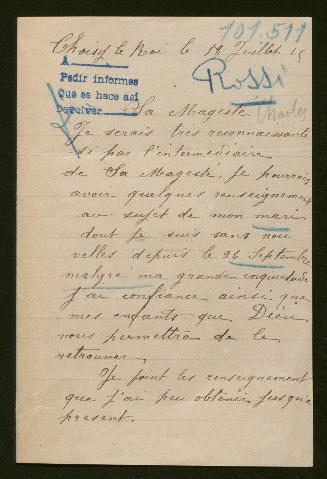 101.511
Choisy le Roi le 18 Juillet 15
Rossi
Charles
A
Pedir informes
Que se hace así
Devolver
Sa Magesté
Je serais très reconnaissante
si par l'intermédiaire
de Sa Magesté, je pourrais
avoir quelques renseignement
au sujet de mon mari
dont je suis sans nou
velles depuis le 26 Septembre
malgré ma grande inquietude
j'ai confiance ainsi que
mes enfants que Dieu
nous permettra de le
retrouver,
Je joint les renseignement
que j'ai pu obtenir jusqu'a
présent.